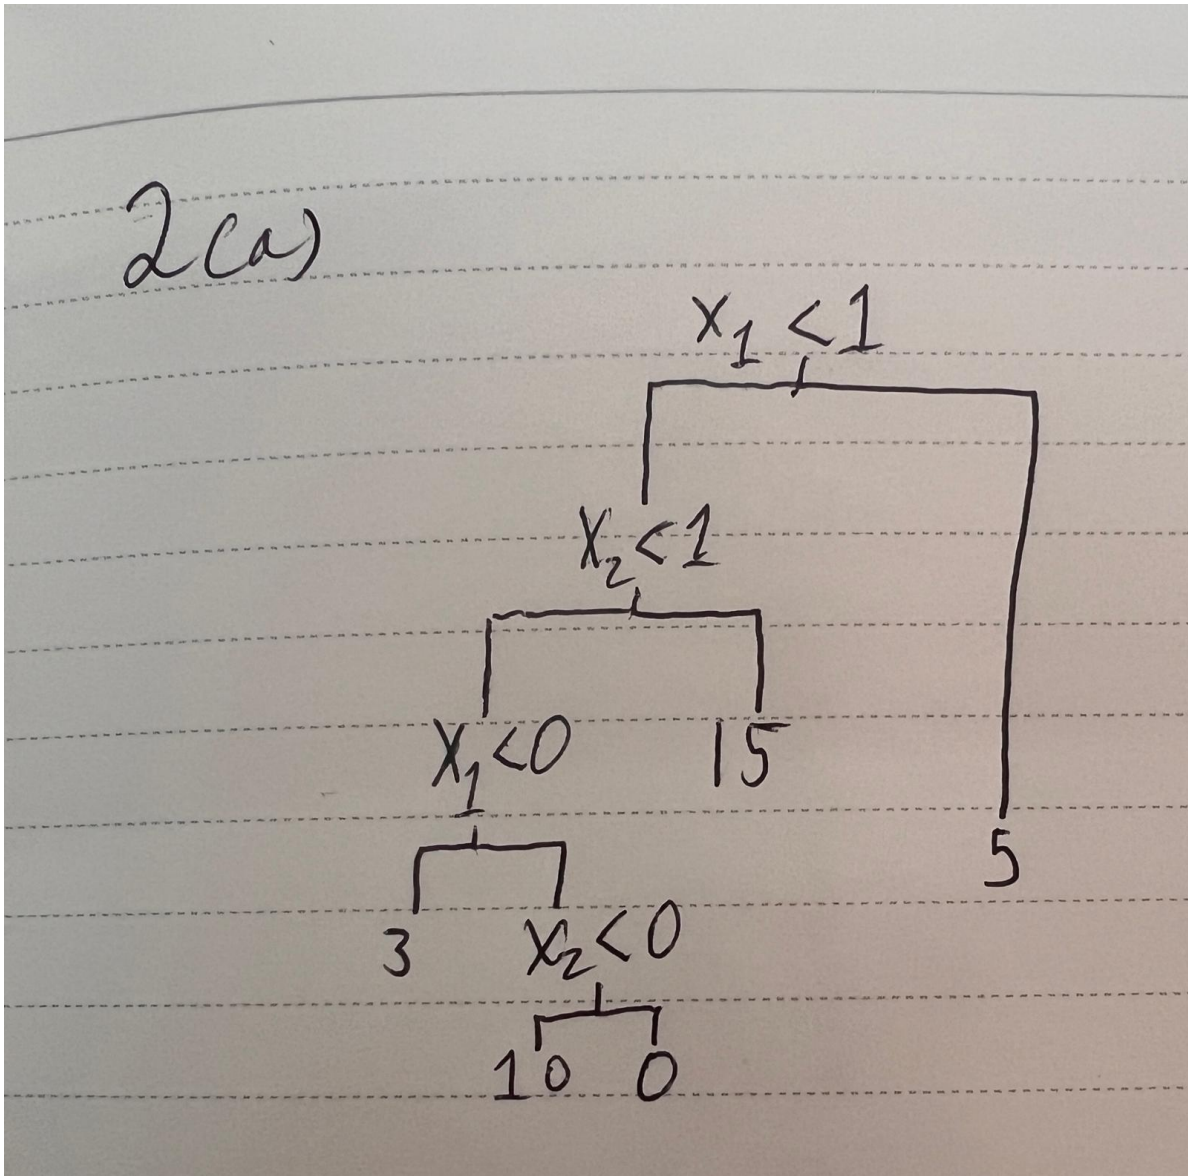 2(a)
x₁ < 1
x₂ < 1
x₁ < 0 15
5
3 x₂ < 0
10 0